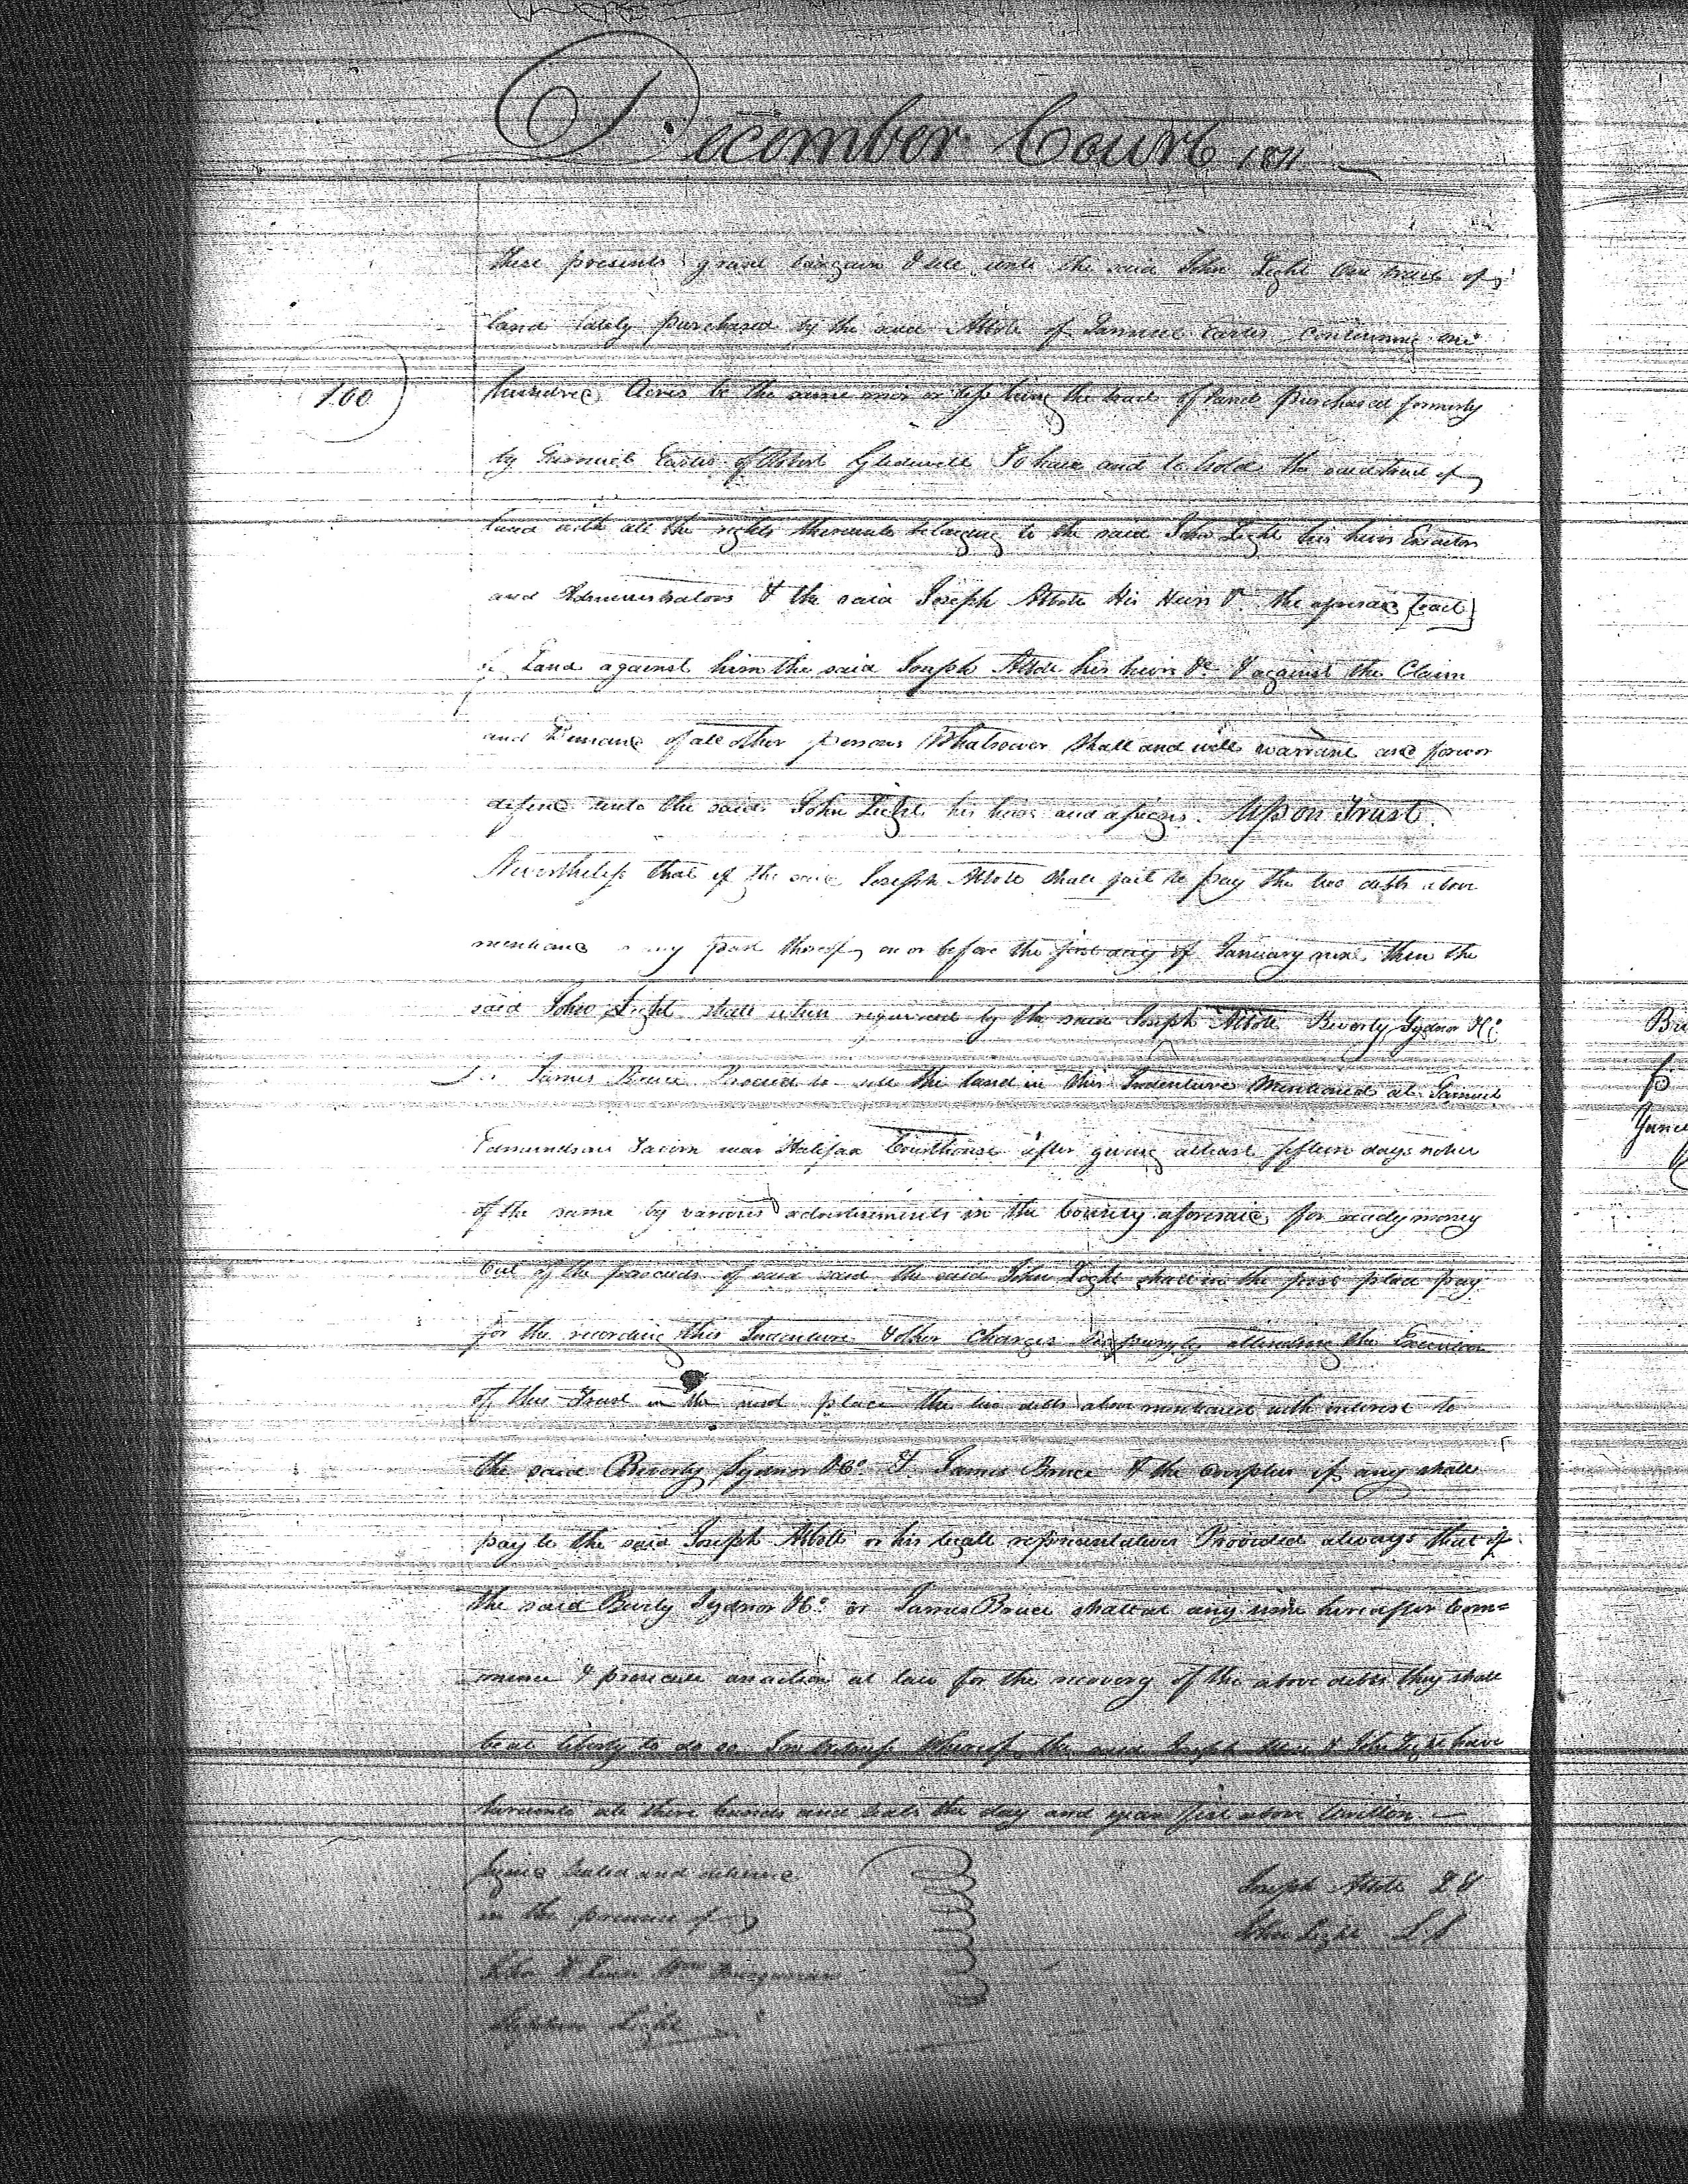 December Court 1811
these presents grant bargain & sell unto the said John Light one tract of
land lately purchased by the said Abbott of Samuel Carter containing one
100
hundred Acres be the same more or less being the tract of Land purchased formerly
by Samuel Carter of Robert Glidewell To have and to hold the said tract of
land with all the rights thereunto belonging to the said John Light his heirs Executors
and Administrators & the said Joseph Abbott His Heirs &c the aforesaid tract
of Land against him the said Joseph Abbott his heirs &c & against the Claim
and Demand of all other persons Whatsoever shall and will warrant and forever
defend unto the said John Light his heirs and assigns. Upon Trust
Nevertheless that if the said Joseph Abbott shall fail to pay the two debts above
mentioned or any part thereof on or before the first day of January next then the
said John Light shall when required by the said Joseph Abbott Beverly Sydnor & Co
or James Bruce Proceed to sell the land in this Indenture Mentioned at Samuel
Edmundson Tavern near Halifax Courthouse after giving atleast fifteen days notice
of the same by various advertisements in the County aforesaid for ready money
Out of the proceeds of said the said John Light shall in the first place pay
for the recording this Indenture & other Charges attending the Execution
of this Trust in the next place the two debts above mentioned with interest to
the said Beverly Sydnor & Co & James Bruce & the overplus if any shall
pay to the said Joseph Abbott or his legall representatives Provided always that if
the said Beverly Sydnor & Co or James Bruce shall at any time hereafter Com=
mence & prosecute an action at law for the recovery of the above debts they shall
be at liberty to do so In Witness Whereof the said Joseph Abbott & John Light have
hereunto set their hands and seals the day and year first above Written.
Signed Sealed and delivered
in the presence of
Joseph Abbott LS
John Light LS
Stephen Light
Bru